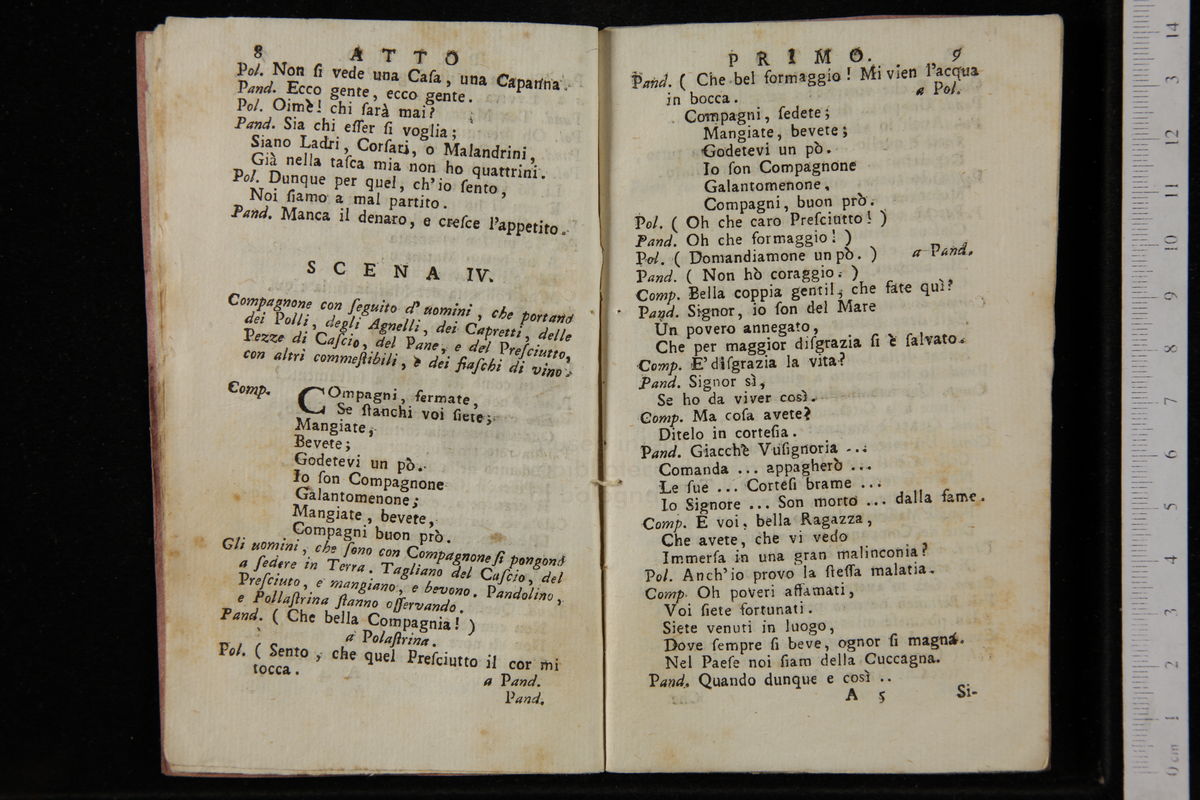 8 ATTO
Pol. Non ſi vede una Caſa, una Capanna.
Pand. Ecco gente, ecco gente.
Pol. Oimè! chi ſarà mai?
Pand. Sia chi eſſer ſi voglia;
Siano Ladri, Corſari, o Malandrini,
Già nella taſca mia non ho quattrini.
Pol. Dunque per quel, ch'io ſento,
Noi ſiamo a mal partito.
Pand. Manca il denaro, e creſce l'appetito.
SCENA IV.
Compagnone con ſeguito d' uomini, che portano
dei Polli, degli Agnelli, dei Capretti, delle
Pezze di Caſcio, del Pane, e del Preſciutto,
con altri commeſtibili, e dei fiaſchi di vino.
Comp. COmpagni, fermate,
Se ſtanchi voi ſiete;
Mangiate,
Bevete;
Godetevi un pò.
Io ſon Compagnone
Galantomenone;
Mangiate, bevete,
Compagni buon prò.
Gli uomini, che ſono con Compagnone ſi pongono
a ſedere in Terra. Tagliano del Caſcio, del
Preſciuto, e mangiano, e bevono. Pandolino,
e Pollaſtrina ſtanno oſſervando.
Pand. ( Che bella Compagnia! )
a Polaſtrina.
Pol. ( Sento, che quel Preſciutto il cor mi
tocca.
a Pand.
Pand.
PRIMO. 9
Pand. ( Che bel formaggio! Mi vien l'acqua
in bocca. a Pol.
Compagni, ſedete;
Mangiate, bevete;
Godetevi un pò.
Io ſon Compagnone
Galantomenone,
Compagni, buon prò.
Pol. ( Oh che caro Preſciutto! )
Pand. Oh che formaggio! )
Pol. ( Domandiamone un pò. ) a Pand.
Pand. ( Non hò coraggio. )
Comp. Bella coppia gentil, che fate quì?
Pand. Signor, io ſon del Mare
Un povero annegato,
Che per maggior diſgrazia ſi è ſalvato.
Comp. E' diſgrazia la vita?
Pand. Signor sì,
Se ho da viver così.
Comp. Ma coſa avete?
Ditelo in corteſia.
Pand. Giacchè Vuſignoria ...
Comanda ... appagherò ...
Le ſue ... Corteſi brame ...
Io Signore ... Son morto ... dalla fame.
Comp. E voi, bella Ragazza,
Che avete, che vi vedo
Immerſa in una gran malinconia?
Pol. Anch'io provo la ſteſſa malatia.
Comp. Oh poveri affamati,
Voi ſiete fortunati.
Siete venuti in luogo,
Dove ſempre ſi beve, ognor ſi magna.
Nel Paeſe noi ſiam della Cuccagna.
Pand. Quando dunque e così ..
A 5 Si-